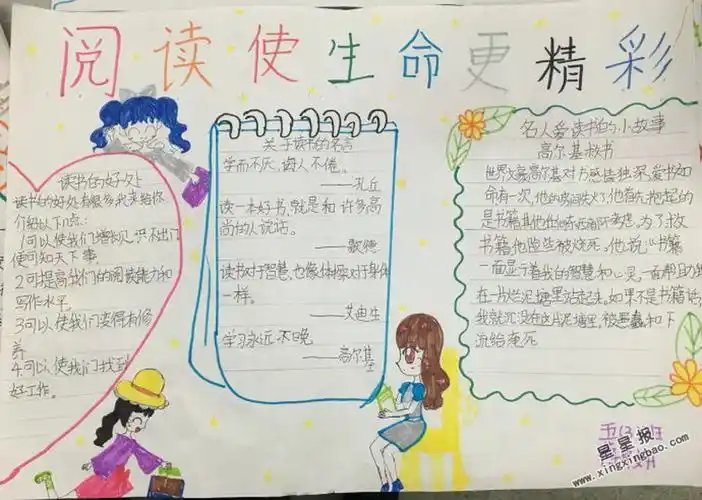 阅读使生命更精彩
读书的好处
读书的好处有很多我来给你
介绍以下几点:
1可以使我们增知见识不出门
便可知天下事.
2可提高我们的阅读能力和
写作水平.
3可以使我们变得有修
养
4可以使我们找到
好工作.
关于读书的名言
学而不厌,诲人不倦.
——孔丘
读一本好书,就是和许多高
尚的人说话。
——歌德
读书对于智慧,也像体操对于身体
一样。
——艾迪生
学习永远不晚
——高尔基
名人爱读书的小故事
高尔基救书
世界文豪高尔基对书感情独深,爱书如
命有一次,他的房间失火了,他首先抱起的
是书籍其他的东西都不考虑.为了救
书籍他险些被烧死.他说:"书籍
一面显示着我的智慧和心灵,一面帮助我
在一片烂泥塘里站起来,如果不是书籍话,
我就沉没在这片泥塘里,被愚蠢和下
流给淹死
五(3)班
星星报
www.xingxingbao.com